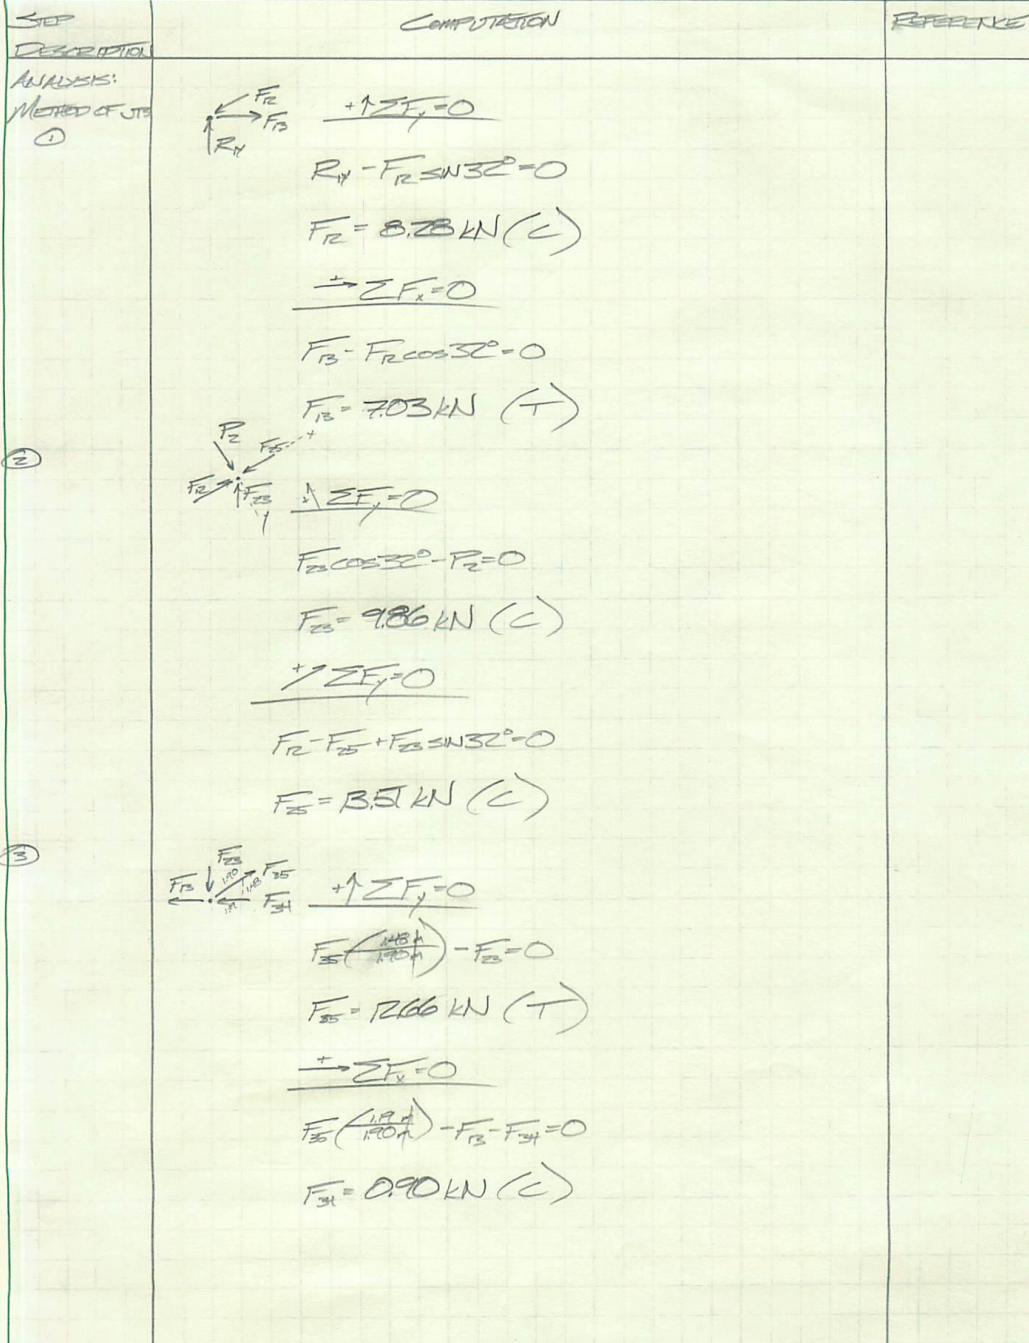 STEP DESCRIPTION
COMPUTATION
REFERENCE
ANALYSIS:
METHOD OF JTS
①
F12
F13
R1Y
+↑ΣFy=0
R1Y - F12 SIN32°=0
F12 = 8.28 kN (C)
+→ ΣFx=0
F13 - F12 COS32°=0
F13 = 7.03 kN (T)
②
P2
F25
+
F12
F23
Y
ΣFy=0
F23 COS32° - P2=0
F23 = 9.86 kN (C)
+↗ ΣFy=0
F12 - F25 + F23 SIN32°=0
F25 = 13.51 kN (C)
③
F23
F13
F35
1.90
1.48
1.19
F34
+↑ΣFy=0
F35(1.48m/1.90m) - F23=0
F35 = 12.66 kN (T)
+→ ΣFx=0
F35(1.19m/1.90m) - F13 - F34=0
F34 = 0.90 kN (C)